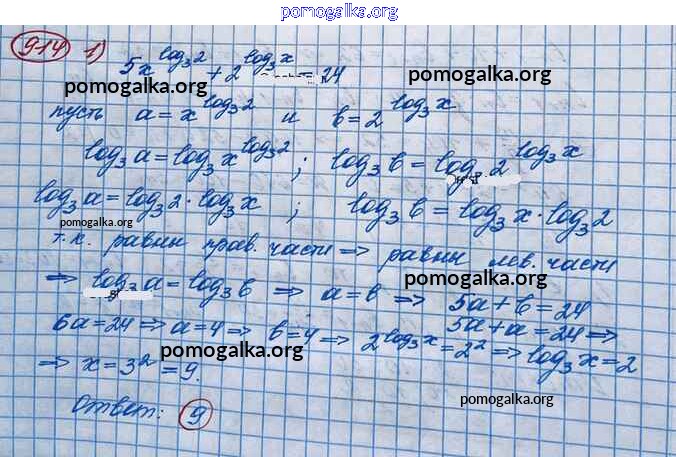 pomogalka.org
914 1) 5x^{log_3 2} + 2^{log_3 x} = 24
pomogalka.org pomogalka.org
пусть a = x^{log_3 2} и b = 2^{log_3 x}
log_3 a = log_3 x^{log_3 2} ; log_3 b = log 2^{log_3 x}
log_3 a = log_3 2 · log_3 x ; log_3 b = log_3 x · log_3 2
pomogalka.org
т.к. равны прав. части => равны лев. части
pomogalka.org
=> log_3 a = log_3 b => a = b => 5a + b = 24
5a + a = 24 =>
6a = 24 => a = 4 => b = 4 => 2^{log_3 x} = 2^2 => log_3 x = 2
pomogalka.org
=> x = 3^2 = 9.
pomogalka.org
Ответ: 9